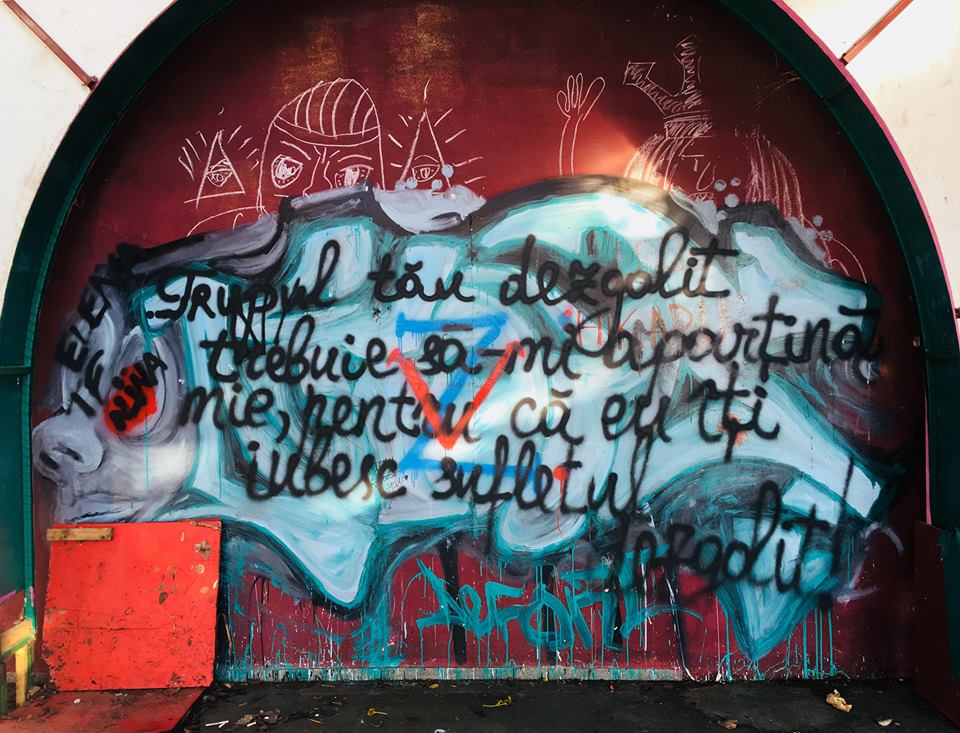 ...Trupul tău dezgolit
trebuie să-mi aparțină
mie, pentru că eu îți
iubesc sufletul
dezgolit!
ELENA
Z
V